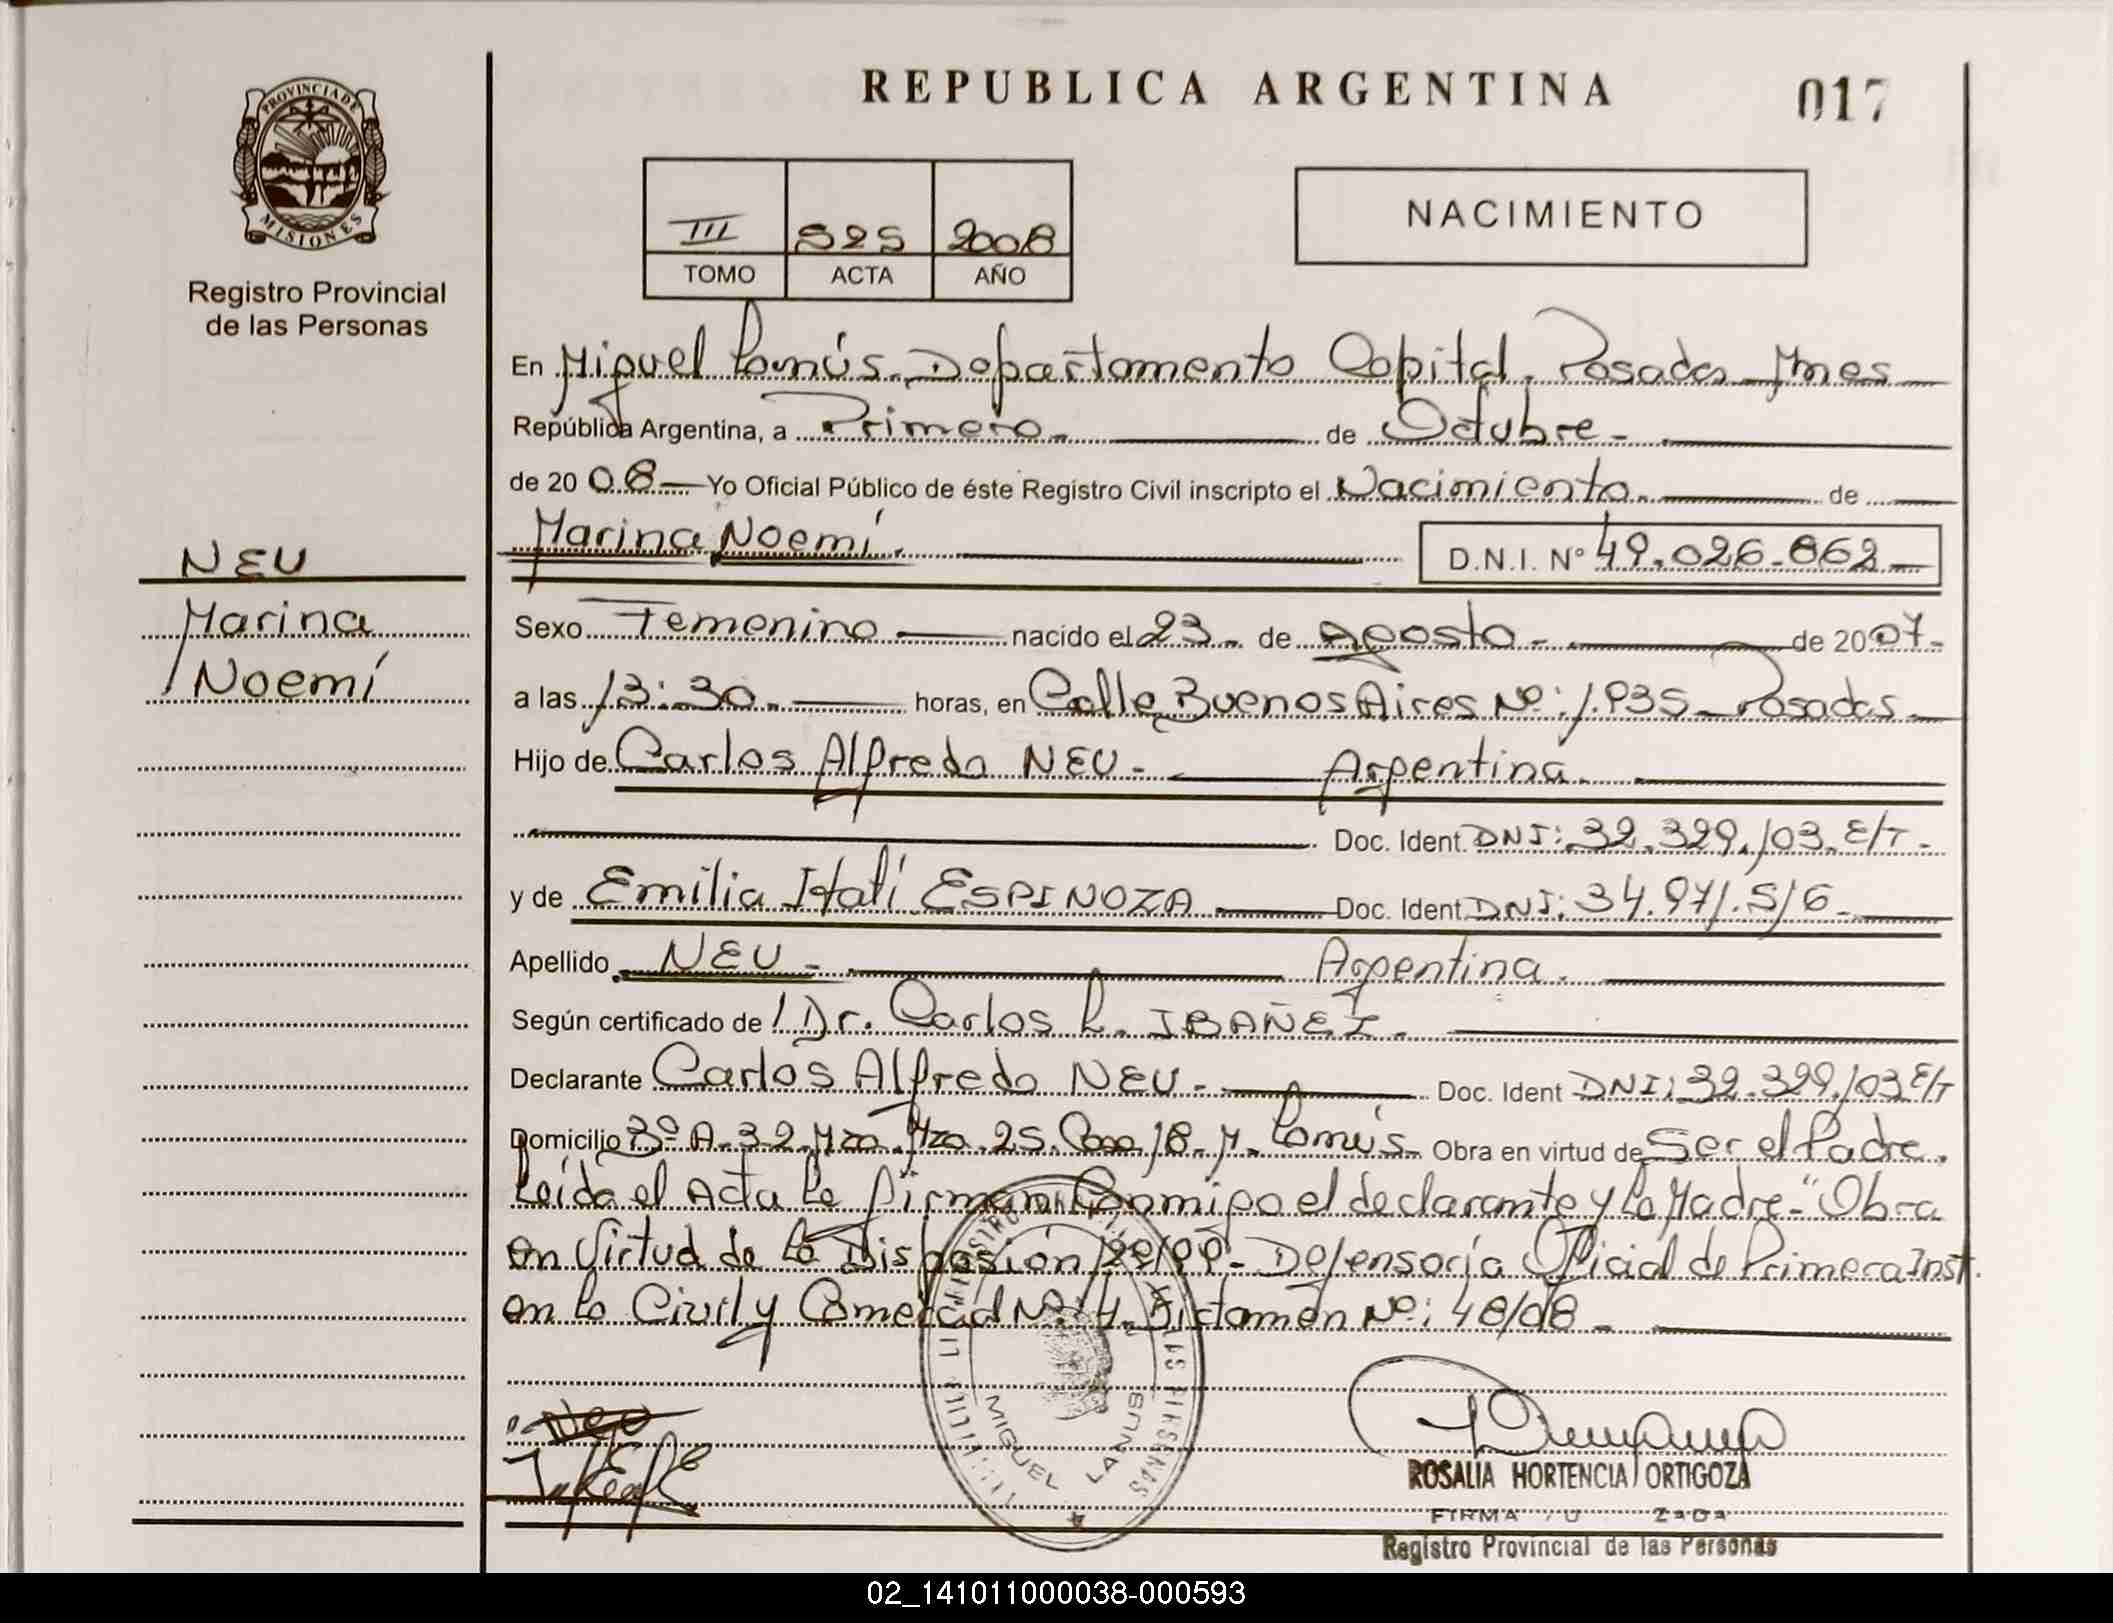 REPUBLICA ARGENTINA
017
PROVINCIA DE
MISIONES
Registro Provincial
de las Personas
III 525 2008
TOMO ACTA AÑO
NACIMIENTO
En Miguel Lanús. Departamento Capital. Posadas Mnes
República Argentina, a Primero. de Octubre.
de 2008 Yo Oficial Público de éste Registro Civil inscripto el Nacimiento. de
Marina Noemí. D.N.I. Nº 49.026.862
NEU
Marina
Noemí
Sexo Femenino nacido el 23. de Agosto. de 2007.
a las 13:30. horas, en Calle Buenos Aires Nº: 1.935 Posadas
Hijo de Carlos Alfredo NEU. Argentina.
Doc. Ident. DNI: 32.329.103. E/T.
y de Emilia Itatí ESPINOZA Doc. Ident DNI: 34.971.516.
Apellido NEU. Argentina.
Según certificado de Dr. Carlos R. IBAÑEZ.
Declarante Carlos Alfredo NEU. Doc. Ident DNI: 32.329.103 E/T
Domicilio Bº A.3.2. Mza. 25. Casa 18. M. Lanús. Obra en virtud de Ser el Padre.
Leída el Acta La firman Conmigo el declarante y la Madre. "Obra
en Virtud de la Disposión 122/99. Defensoría Oficial de Primera Inst.
en lo Civil y Comercial Nº: 4. Dictamen Nº: 48/08.
MIGUEL LANUS
ROSALIA HORTENCIA ORTIGOZA
FIRMA
Registro Provincial de las Personas
02_141011000038-000593